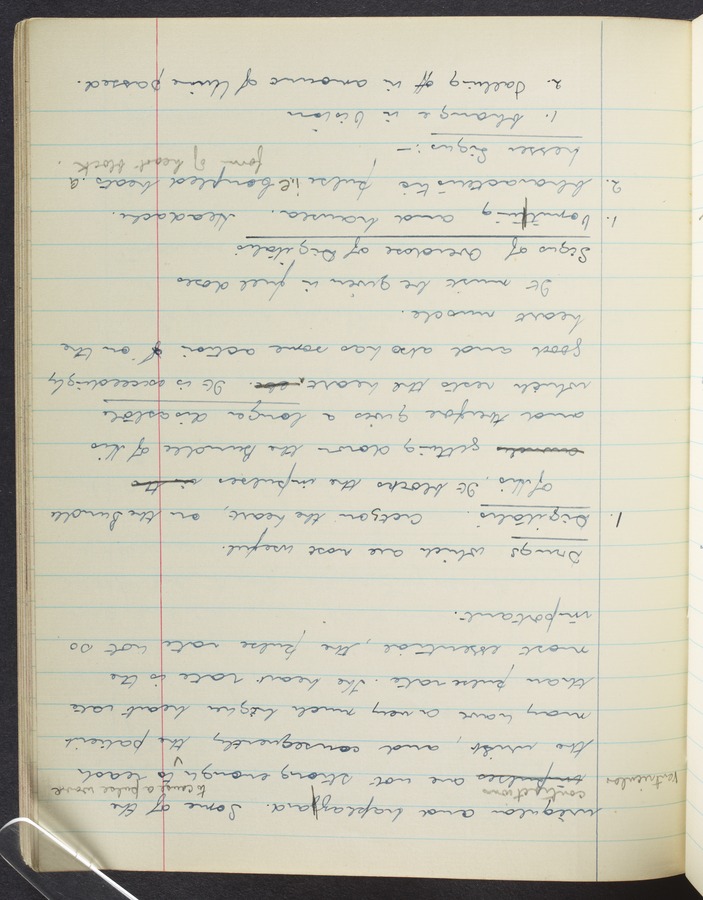 irregular and haphazzard. Some of the
ventricular contractions to cause a pulse wave
impulses are not strong enough to reach
the wrist, and consequently the patient
may have a very much higher heart rate
than pulse rate. The heart rate is the
most essential, the pulse rate not so
important.
Drugs which are most useful.
1. Digitalis. Acts on the heart, on the Bundle
of His. It blocks the impulses in the
getting down the Bundle of His
and therefore gives a longer diastole
which rests the heart. It is exceedingly
good and also has some action of on the
heart muscle.
It must be given in full doses
Signs of Overdose of Digitalis
1. Vomiting and nausea. Headache.
2. Characteristic pulse i.e coupled beats. a
form of heart block.
Lesser Signs :-
1. Change in Vision
2. Falling off in amount of Urine passed.